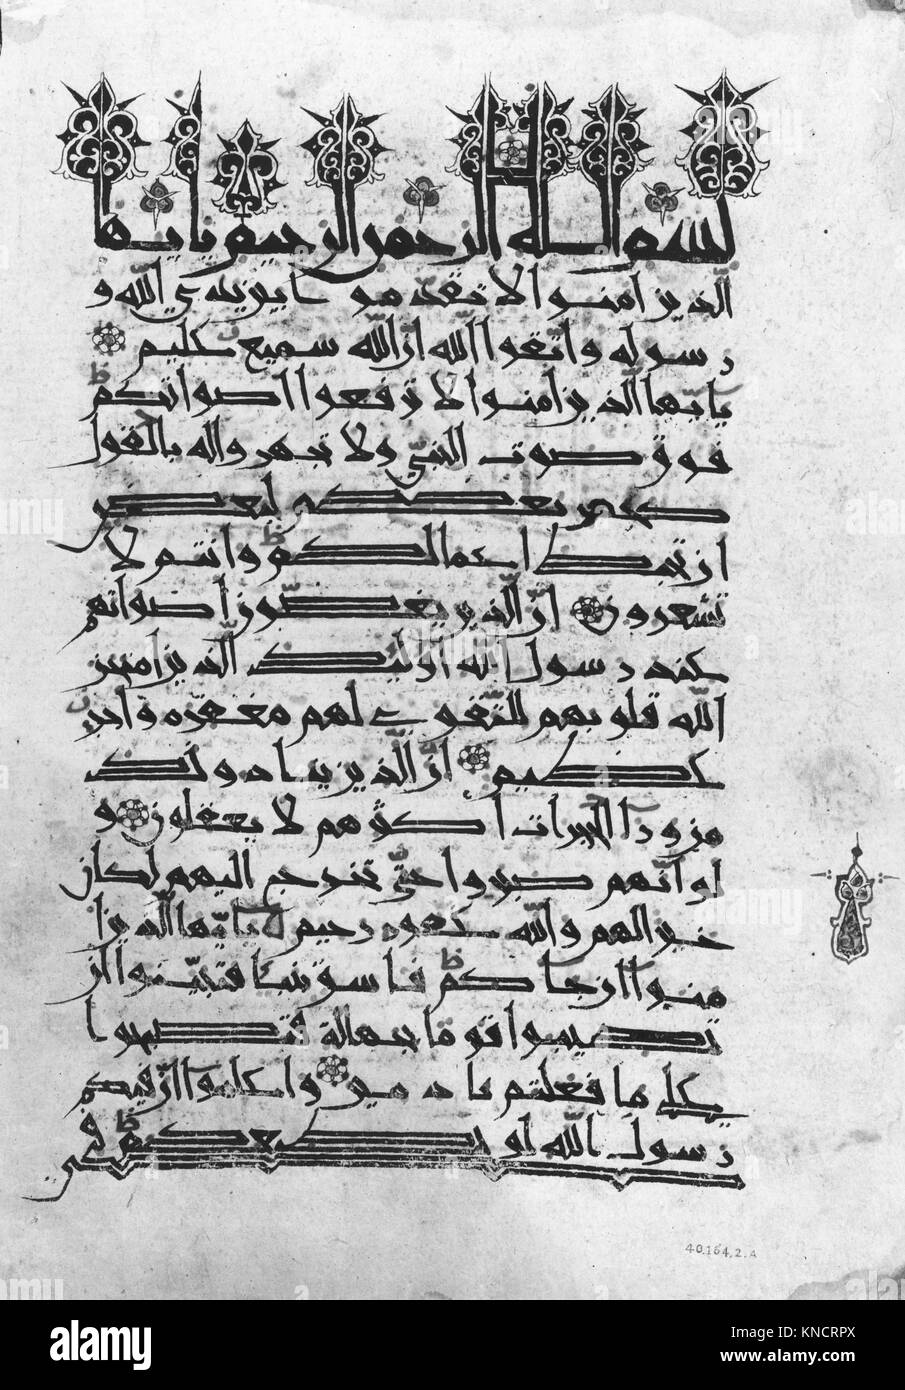 بسم الله الرحمن الرحيم يا أيها
الذين آمنوا لا تقدموا بين يدي الله و
رسوله واتقوا الله إن الله سميع عليم
يا أيها الذين آمنوا لا ترفعوا أصواتكم
فوق صوت النبي ولا تجهروا له بالقول
كجهر بعضكم لبعض
أن تحبط أعمالكم وأنتم لا
تشعرون إن الذين يغضون أصواتهم
عند رسول الله أولئك الذين امتحن
الله قلوبهم للتقوى لهم مغفرة وأجر
عظيم إن الذين ينادونك
من وراء الحجرات أكثرهم لا يعقلون و
لو أنهم صبروا حتى تخرج إليهم لكان
خيرا لهم والله غفور رحيم يا أيها الذين آ
منوا إن جاءكم فاسق بنبأ فتبينوا أن
تصيبوا قوما بجهالة فتصبحوا
على ما فعلتم نادمين واعلموا أن فيكم
رسول الله لو يطيعكم في
40.164.2.A
alamy
alamy
Image ID: KNCRPX
www.alamy.com